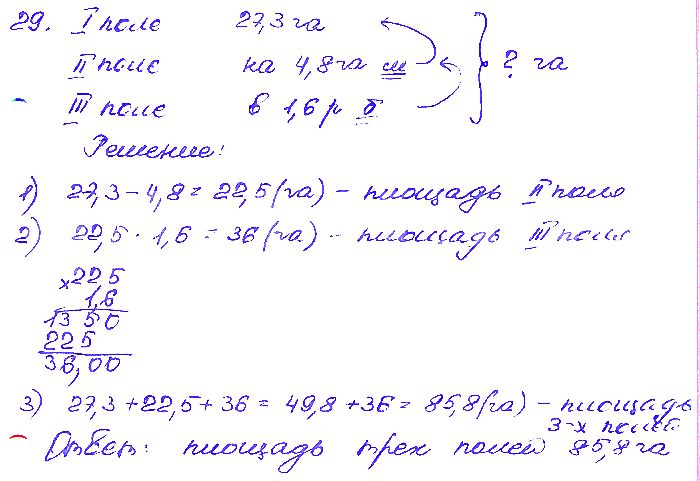 29. I поле 27,3 га
II поле на 4,8 га м } ? га
III поле в 1,6 р б
Решение:
1) 27,3 - 4,8 = 22,5 (га) - площадь II поля
2) 22,5 · 1,6 = 36 (га) - площадь III поля
× 22,5
1,6
1350
225
36,00
3) 27,3 + 22,5 + 36 = 49,8 + 36 = 85,8 (га) - площадь
3-х полей
Ответ: площадь трех полей 85,8 га